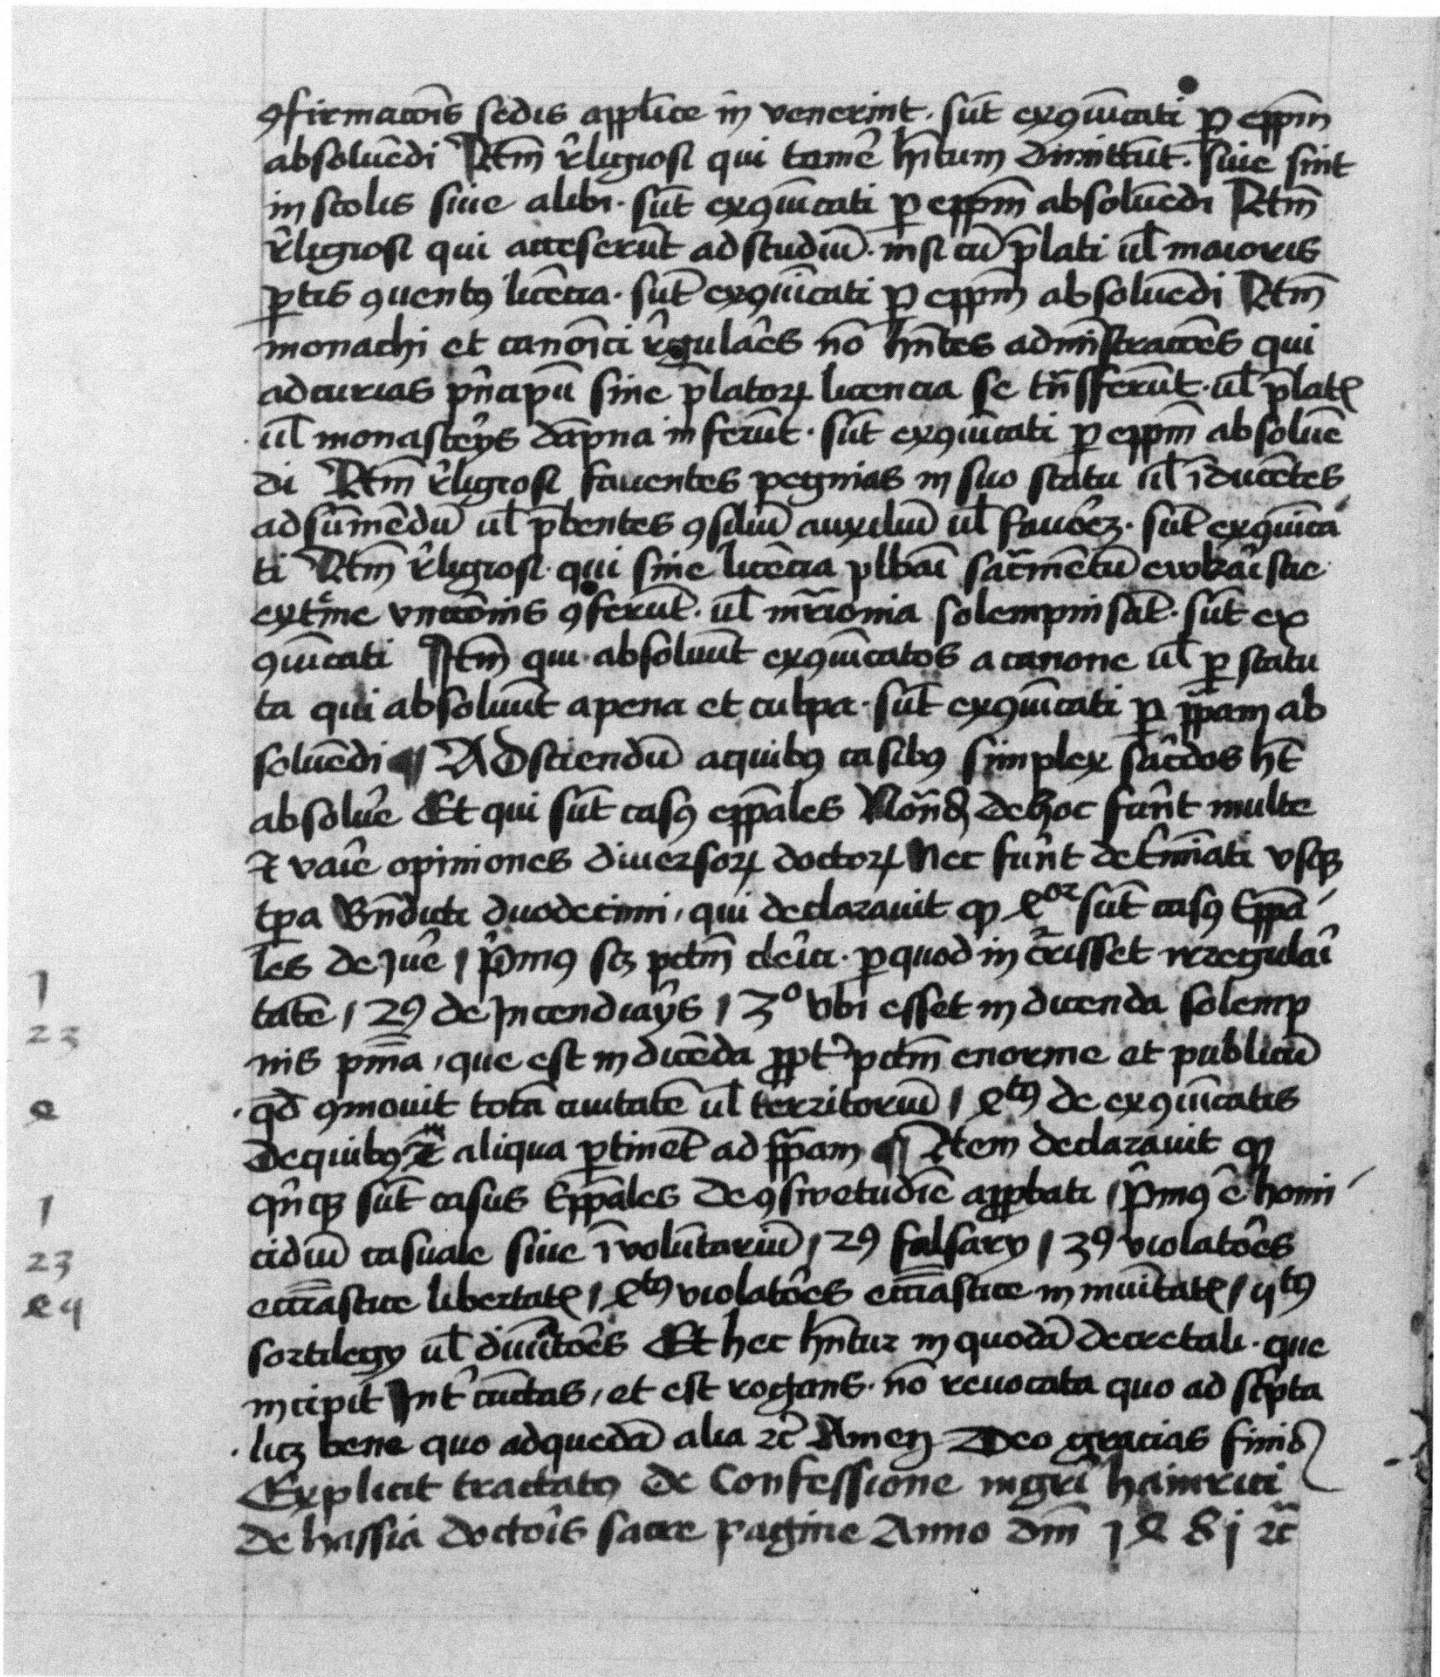 ꝯfirmacōis sedis appl̄ice in venerint · sūt exꝯuīcati ꝑ epp̄m
absoluēdi Itm̄ r̄ligiosi qui tamē hītum dimittūt · siue sint
in scolis siue alibi · sūt exꝯuīcati ꝑ epp̄m absoluēdi Itm̄
r̄ligiosi qui acceserūt ad studiū · nisi cū p̄lati ul̄ maioris
ꝑtis ꝯuentꝰ licēcia · sūt exꝯuīcati ꝑ epp̄m absoluēdi Itm̄
monachi et canoīci r̄gulārēs nō hn̄tes admīstracōes qui
ad curias pn̄cipū sine p̄latoꝝ licencia se tn̄sferūt · ul̄ p̄latꝭ
ul̄ monastērijs dāpna inferūt · sūt exꝯuīcati ꝑ epp̄m absoluē
di Itm̄ r̄ligiosi fauentes in suo statu ul̄ īducētes
ad sūmēdū ul̄ p̄bentes ꝯsiliū auxiliū ul̄ fauōrēꝫ · sūt exꝯuīca
ti Itm̄ r̄ligiosi · qui sine licēcia plb̄ani sacr̄mētū eukaristie
extr̄me vnccōnis ꝯferūt · ul̄ mr̄imonia solempnisāt · sūt ex
ꝯuīcati Itm̄ qui absoluūt exꝯuīcatos a canone ul̄ ꝑ statu
ta qui absoluūt a pena et culpa · sūt exꝯuīcati ꝑ pp̄am ab
soluēdi ¶ Ad sciendū a quibꝰ casibꝰ simplex sac̄dos hꝫt
absolue᷒ Et qui sūt casꝰ epp̄ales Notand̄ de hoc fue᷒nt multe
⁊ vaīe opiniones diuersoꝝ doctoꝝ Nec fue᷒nt det̄mīati vsqꝫ
tp̄a Bn̄dicti duodecimi, qui declarauit qꝫ 4or sūt casꝰ Epp̄a
les de Jure | p̄mꝰ scꝫ pctm̄ cle᷒ici · ꝑ quod in c̄risset irregulai᷒
tatē | 2ꝰ de Incendiarijs | 3o vbi esset in dicenda solemp
nis pn̄ia, que est in dicēda ꝓpt᷒ pctm̄ enorme et publicū
· qd̄ ꝯmouit totā ciuitatē ul̄ territoriū | 4tꝰ de exꝯuīcatis
De quibꝰ aliqua ꝑtinēt ad pp̄am ¶ Item declarauit qꝫ
qn̄qꝫ sūt casus Epp̄ales de ꝯswetudīe app̄bati | p̄mꝰ ē homi
cidiū casuale siue īuolūtariū | 2ꝰ falsary | 3ꝰ violatōes
eccl̄iastice libertatꝭ | 4tꝰ violatōes eccl̄iastice in mūitatꝭ | 5tꝰ
sortilegy ul̄ diuīatōes Et hec hn̄tur in quodā decretali · que
incipit Int᷒ cūctas, et est rogans · nō reuocata quo ad sc̄pta
· licꝫ bene quo ad quedā alia ⁊c̄ Amen Deo gracias finis
Explicit tractatꝰ de Confessione mgr̄i hainrici
de hassia doctōis sacre pagine Anno dm̄ 1481 ⁊c̄
1
23
4
1
23
45